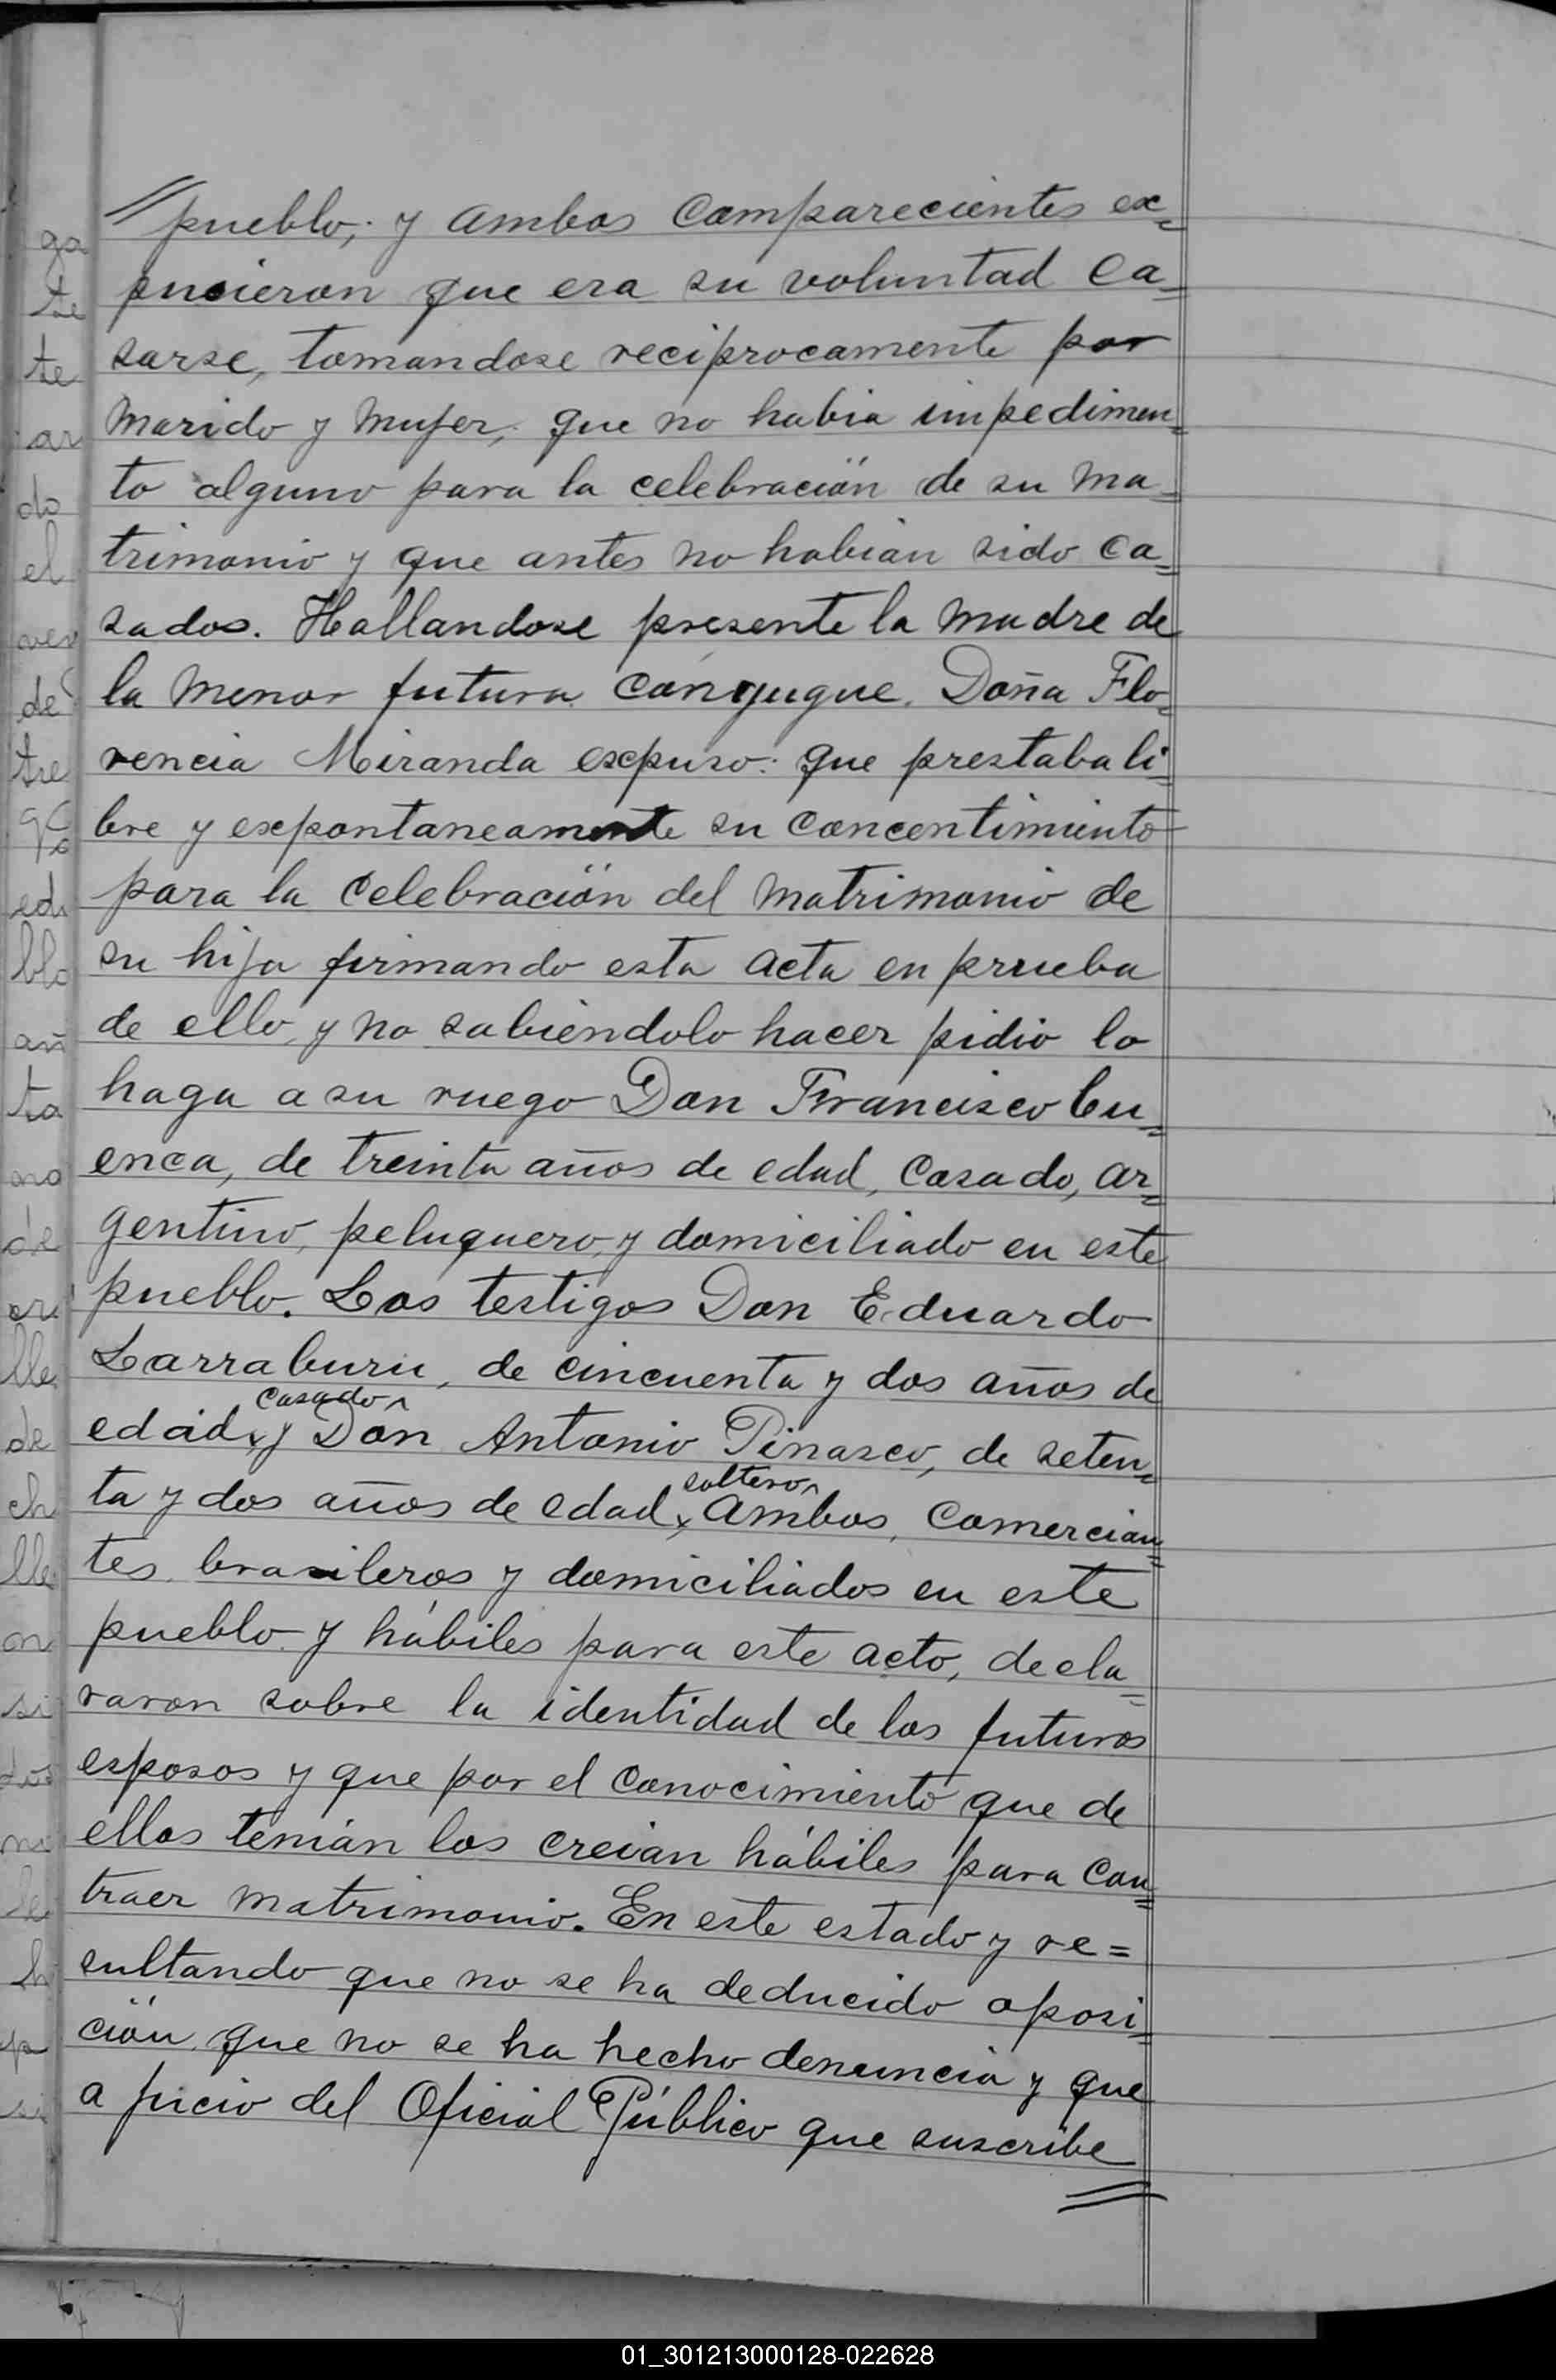 pueblo; y ambos comparecientes ex=
pusieron que era su voluntad ca=
sarse, tomandose reciprocamente por
marido y mujer, que no habia impedimen=
to alguno para la celebración de su ma=
trimonio y que antes no habian sido ca=
sados. Hallandose presente la madre de
la menor futura conyugue, Doña Flo=
rencia Miranda expuso: que prestaba li=
bre y expontaneamente su concentimiento
para la celebración del matrimonio de
su hija firmando esta acta en prueba
de ello, y no sabiéndolo hacer pidio lo
haga a su ruego Don Francisco Cu=
enca, de treinta años de edad, casado, ar=
gentino, peluquero, y domiciliado en este
pueblo. Los testigos Don Eduardo
Larraburu, de cincuenta y dos años de
casado
edad, y Don Antonio Pinasco, de seten=
soltero
ta y dos años de edad, ambos, comercian=
tes, brasileros y domiciliados en este
pueblo y hábiles para este acto, decla=
raron sobre la identidad de los futuros
esposos y que por el conocimiento que de
ellos tenián los creian hábiles para con=
traer matrimonio. En este estado y re=
sultando que no se ha deducido oposi=
ción, que no se ha hecho denuncia y que
a juicio del Oficial Público que suscribe
ga
te
te
ar
do
el
de
tre
edi
blo
añ
ta
de
lle
de
ch
lle
on
si
01_301213000128-022628